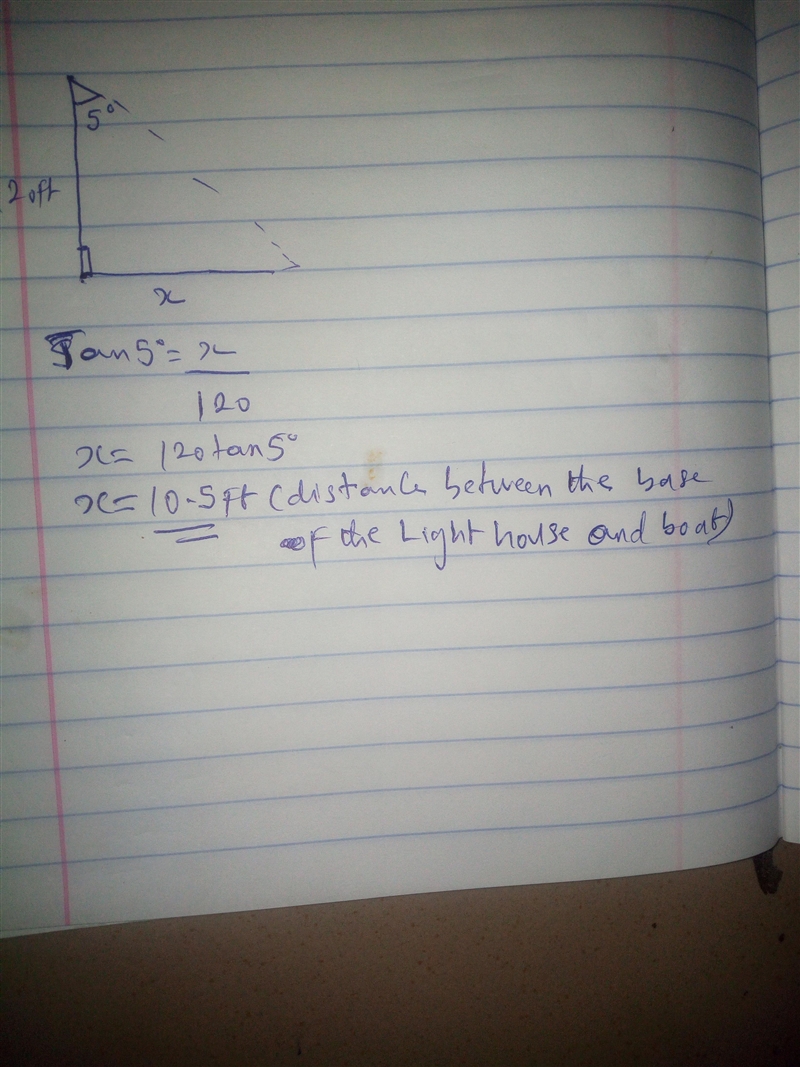 5°
20ft
x
Tan5°= x
120
x= 120tan5°
x= 10.5ft (distance between the base
of the Light house and boat)